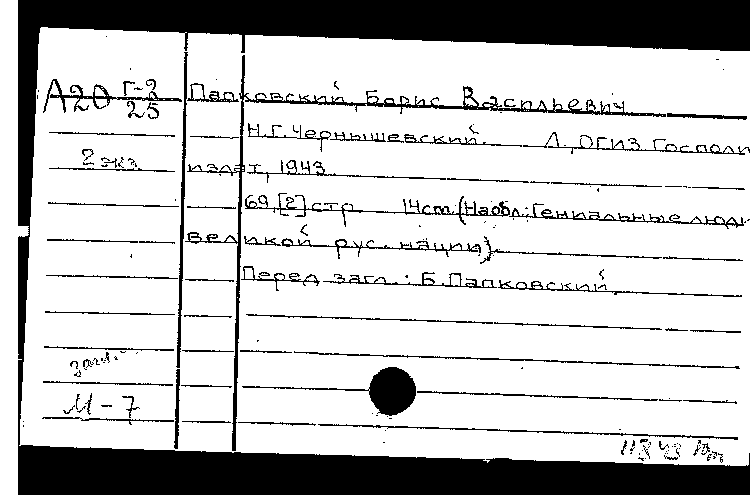 А20 Г-2/25 Папковский, Борис Васильевич
Н.Г.Чернышевский. Л., ОГИЗ. Госполи
2 экз. издат, 1943
69, [2] стр 14 см. (На обл.: Гениальные люди
великой рус. нации).
Перед загл.: Б.Папковский.
М-7